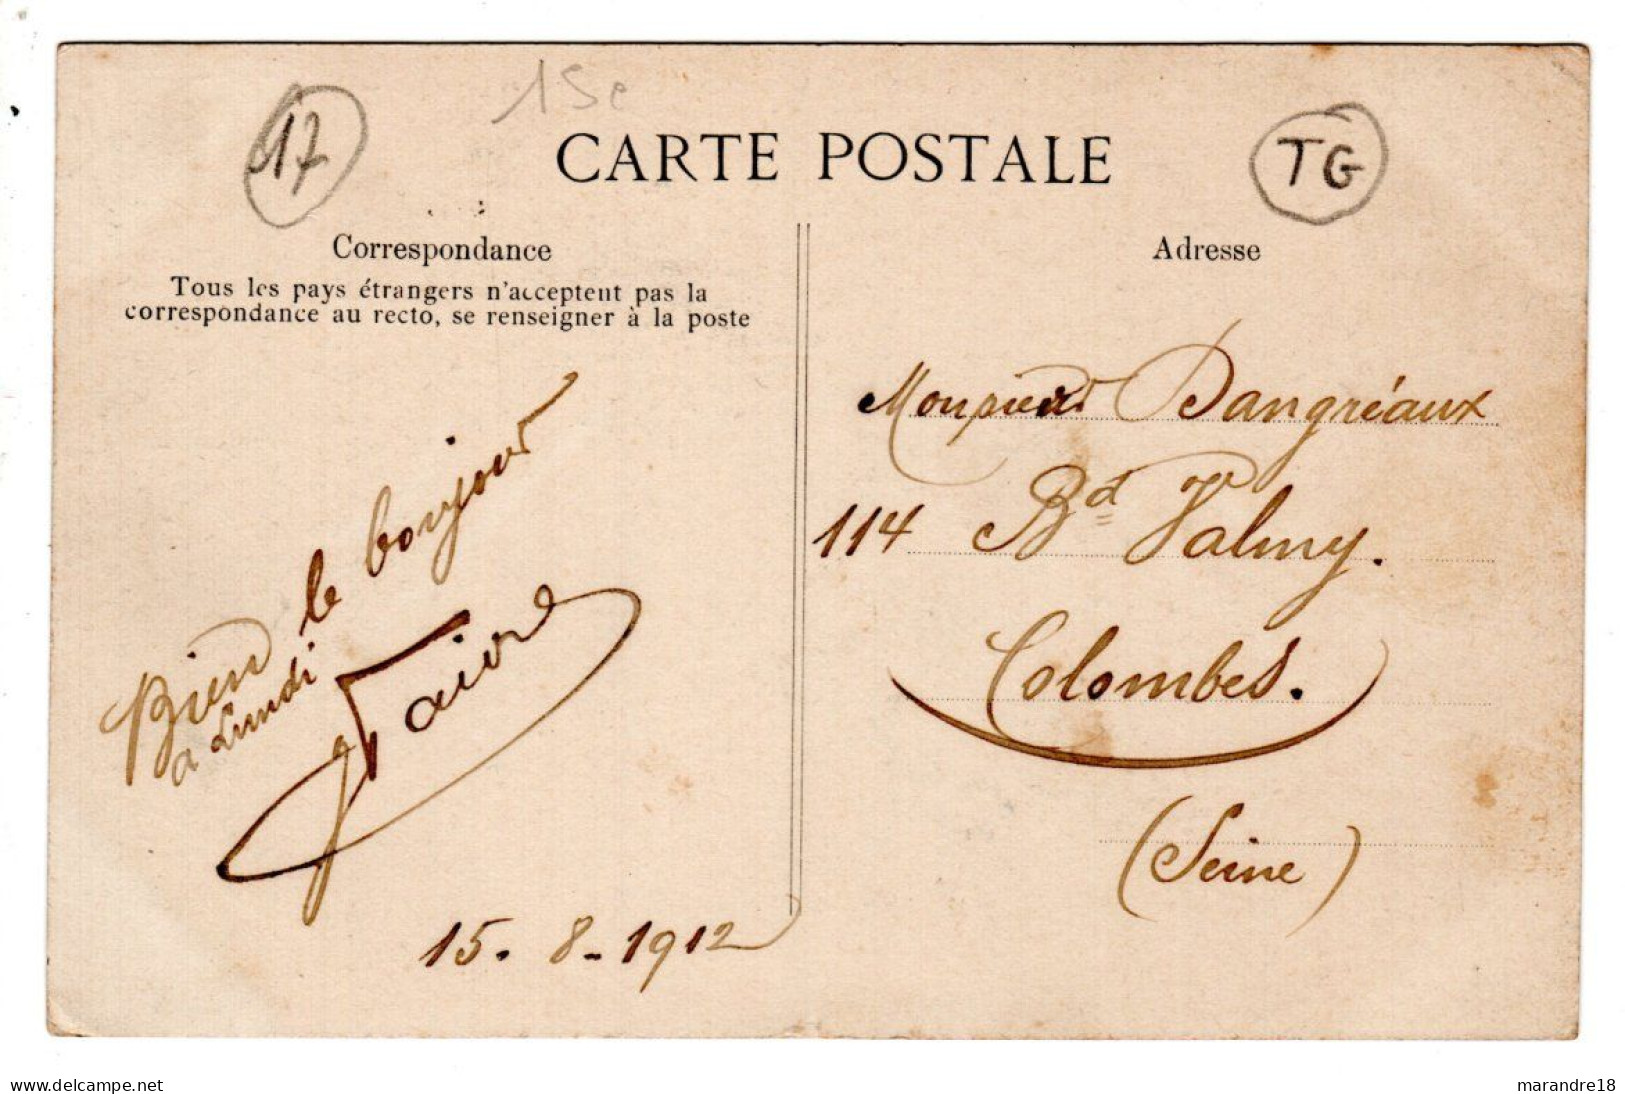 15e
17
CARTE POSTALE
TG
Correspondance
Tous les pays étrangers n'acceptent pas la
correspondance au recto, se renseigner à la poste
Bien le bonjour
a Lundi
Faivre
15. 8 - 1912
Adresse
Monsieur Dangréaux
114 Bd Valmy.
Colombes.
(Seine)
www.delcampe.net
marandre18